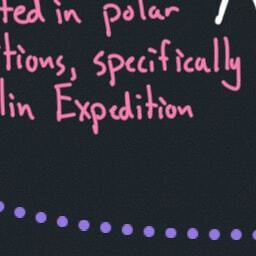 ted in polar
tions, specifically
lin Expedition